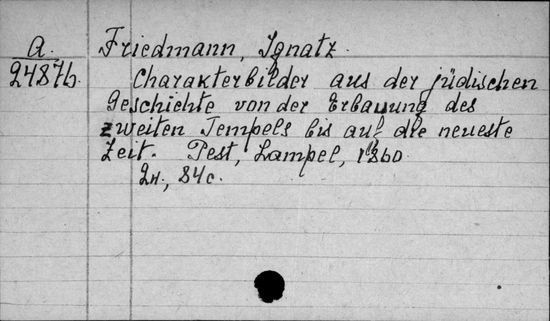 A.
24876.
Friedmann, Ignatz.
Charakterbilder aus der jüdischen
Geschichte von der Erbauung des
zweiten Tempels bis auf die neueste
Zeit. Pest, Lampel, 1860.
2н., 84с.